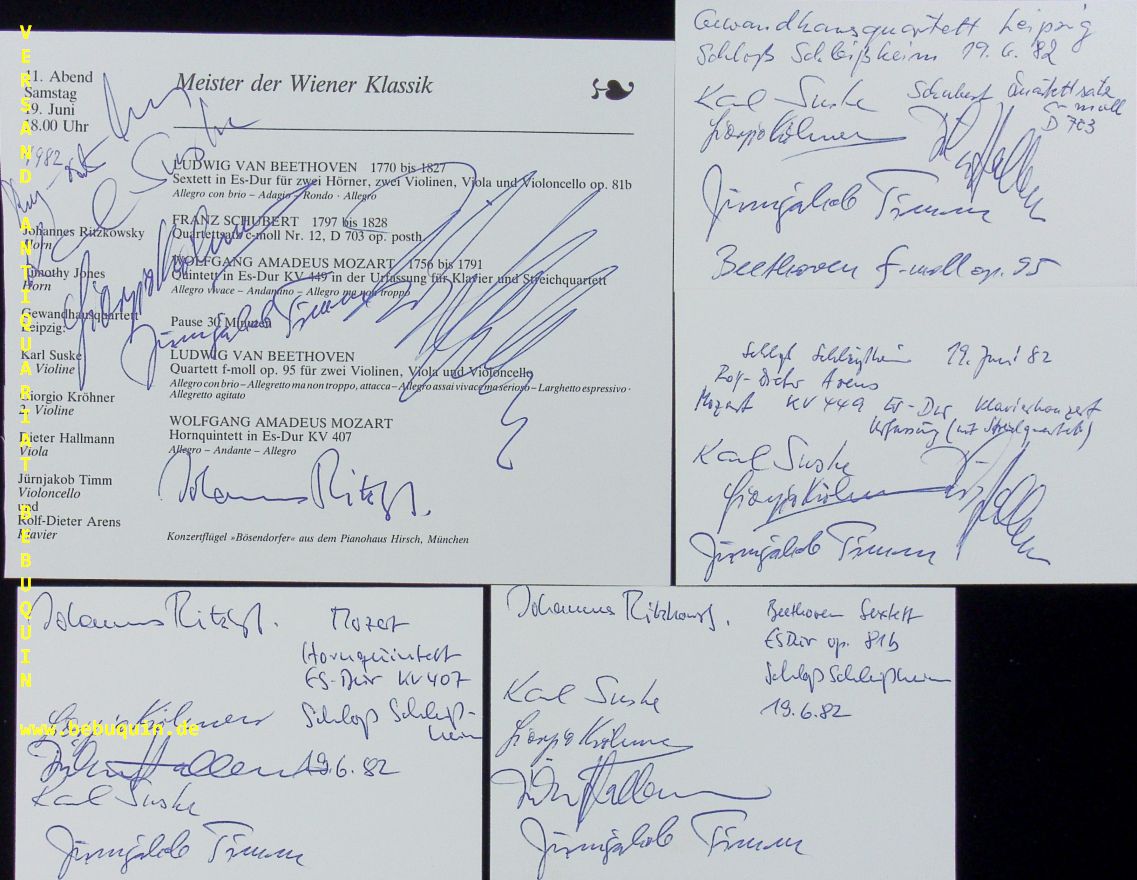 11. Abend
Samstag
19. Juni
18.00 Uhr
1982
Meister der Wiener Klassik
LUDWIG VAN BEETHOVEN 1770 bis 1827
Sextett in Es-Dur für zwei Hörner, zwei Violinen, Viola und Violoncello op. 81b
Allegro con brio – Adagio – Rondo · Allegro
FRANZ SCHUBERT 1797 bis 1828
Quartettsatz c-moll Nr. 12, D 703 op. posth.
WOLFGANG AMADEUS MOZART 1756 bis 1791
Quintett in Es-Dur KV 449 in der Urfassung für Klavier und Streichquartett
Allegro vivace – Andantino – Allegro ma non troppo
Pause 30 Minuten
LUDWIG VAN BEETHOVEN
Quartett f-moll op. 95 für zwei Violinen, Viola und Violoncello
Allegro con brio – Allegretto ma non troppo, attacca – Allegro assai vivace ma serioso – Larghetto espressivo ·
Allegretto agitato
WOLFGANG AMADEUS MOZART
Hornquintett in Es-Dur KV 407
Allegro – Andante – Allegro
Konzertflügel »Bösendorfer« aus dem Pianohaus Hirsch, München
Johannes Ritzkowsky
Horn
Timothy Jones
Horn
Gewandhausquartett
Leipzig:
Karl Suske
1. Violine
Giorgio Kröhner
2. Violine
Dieter Hallmann
Viola
Jürnjakob Timm
Violoncello
und
Rolf-Dieter Arens
Klavier
Karl Suske
Giorgio Kröhner
Jürnjakob Timm
Johannes Ritzk
Gewandhausquartett Leipzig
Schloß Schleißheim 19.6.82
Karl Suske
Schubert Quartettsatz
c-moll
D 703
Giorgio Kröhner
Jürnjakob Timm
Beethoven f-moll op. 95
Schloß Schleißheim 19. Juni 82
Rolf-Dieter Arens
Mozart KV 449 Es-Dur Klavierkonzert
Urfassung (mit Streichquartett)
Karl Suske
Giorgio Kröhner
Jürnjakob Timm
Johannes Ritzk
Mozart
Hornquintett
ES-Dur KV 407
Schloß Schleiß-
heim
19.6.82
Giorgio Kröhner
Dieter Hallmann
Karl Suske
Jürnjakob Timm
Johannes Ritzkowsky
Beethoven Sextett
ES Dur op. 81b
Schloß Schleißheim
19.6.82
Karl Suske
Giorgio Kröhner
Dieter Hallmann
Jürnjakob Timm
VERSANDANTIQUARIAT BEBUQUIN
www.bebuquin.de